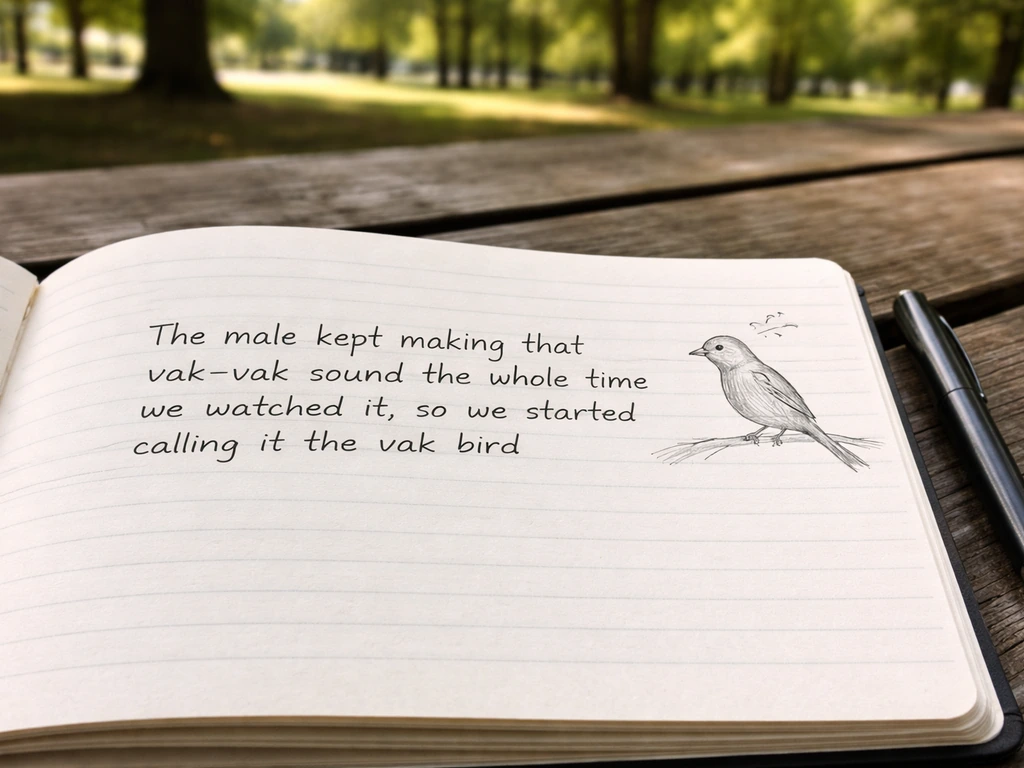 The male kept making that
vak–vak sound the whole time
we watched it, so we started
calling it the vak bird